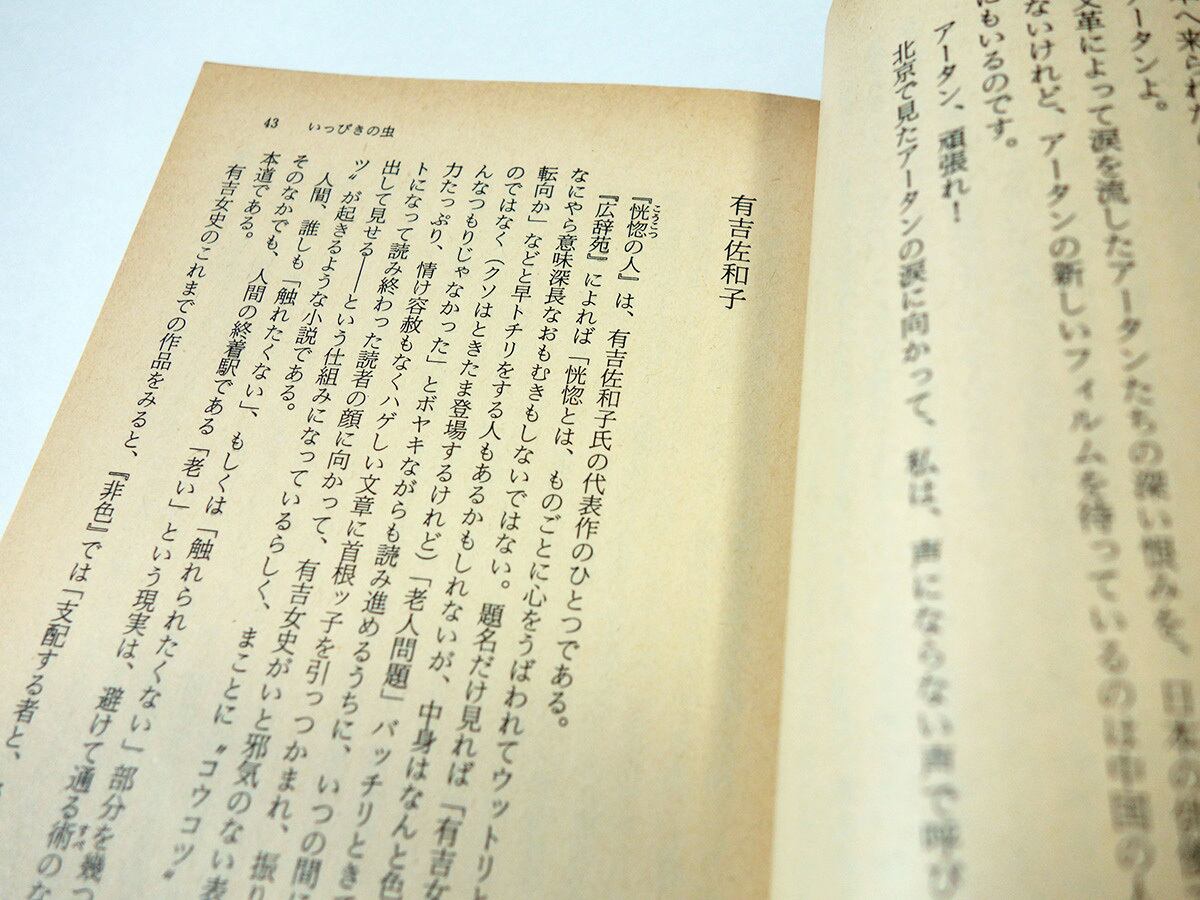 へ来られた
ータンよ。
文革によって涙を流したアータンたちの深い恨みを、日本の俳優
ないけれど、アータンの新しいフィルムを待っているのは中国の
にもいるのです。
アータン、頑張れ！
北京で見たアータンの涙に向かって、私は、声にならない声で呼び
43 いっぴきの虫
有吉佐和子
『恍惚の人』は、有吉佐和子氏の代表作のひとつである。
こうこつ
『広辞苑』によれば「恍惚とは、ものごとに心をうばわれてウットリと
なにやら意味深長なおもむきもしないではない。題名だけ見れば「有吉女
転向か」などと早トチリをする人もあるかもしれないが、中身はなんと色
のではなく（クソはときたま登場するけれど）「老人問題」バッチリとき
んなつもりじゃなかった」とボヤキながらも読み進めるうちに、いつの間に
力たっぷり、情け容赦もなくハゲしい文章に首根ッ子を引っつかまれ、振り
トになって読み終わった読者の顔に向かって、有吉女史がいと邪気のない表
出して見せる——という仕組みになっているらしく、まことに〝コウコツ〟
ツ〟が起きるような小説である。
人間、誰しも「触れたくない」、もしくは「触れられたくない」部分を幾つ
そのなかでも、人間の終着駅である「老い」という現実は、避けて通る術のな
すべ
本道である。
有吉女史のこれまでの作品をみると、『非色』では「支配する者と、